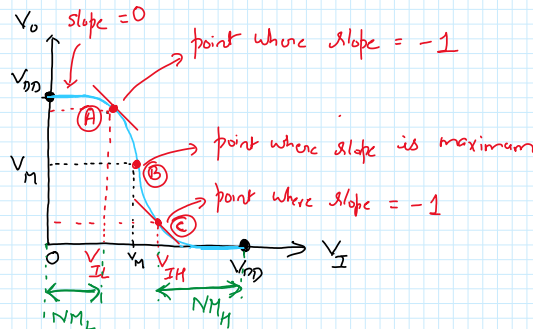 V₀
slope = 0
point where slope = -1
V_DD
A
point where slope is maximum
V_M
B
point where slope = -1
C
0
V_IL
V_M
V_IH
V_DD
V_I
NM_L
NM_H